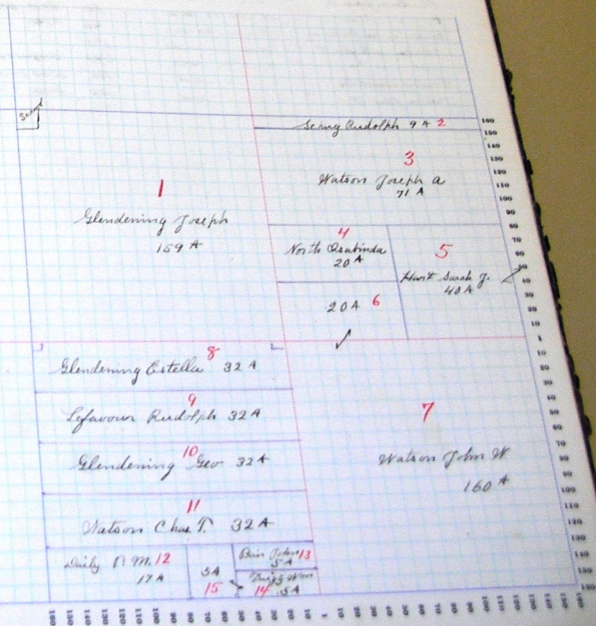 School
Rudolph 9 A 2
3
Watson Joseph A
71 A
1
Glendening Joseph
159 A
4
North
20 A
5
Hart Sarah J.
40 A
20 A 6
8
Glendening Estella 32 A
9
Lefavour Rudolph 32 A
7
10
Glendening Geo 32 A
Watson John W
160 A
11
Watson Chas T. 32 A
Daily P. M. 12
17 A
5A
15
Bair John 13
5 A
14 5A